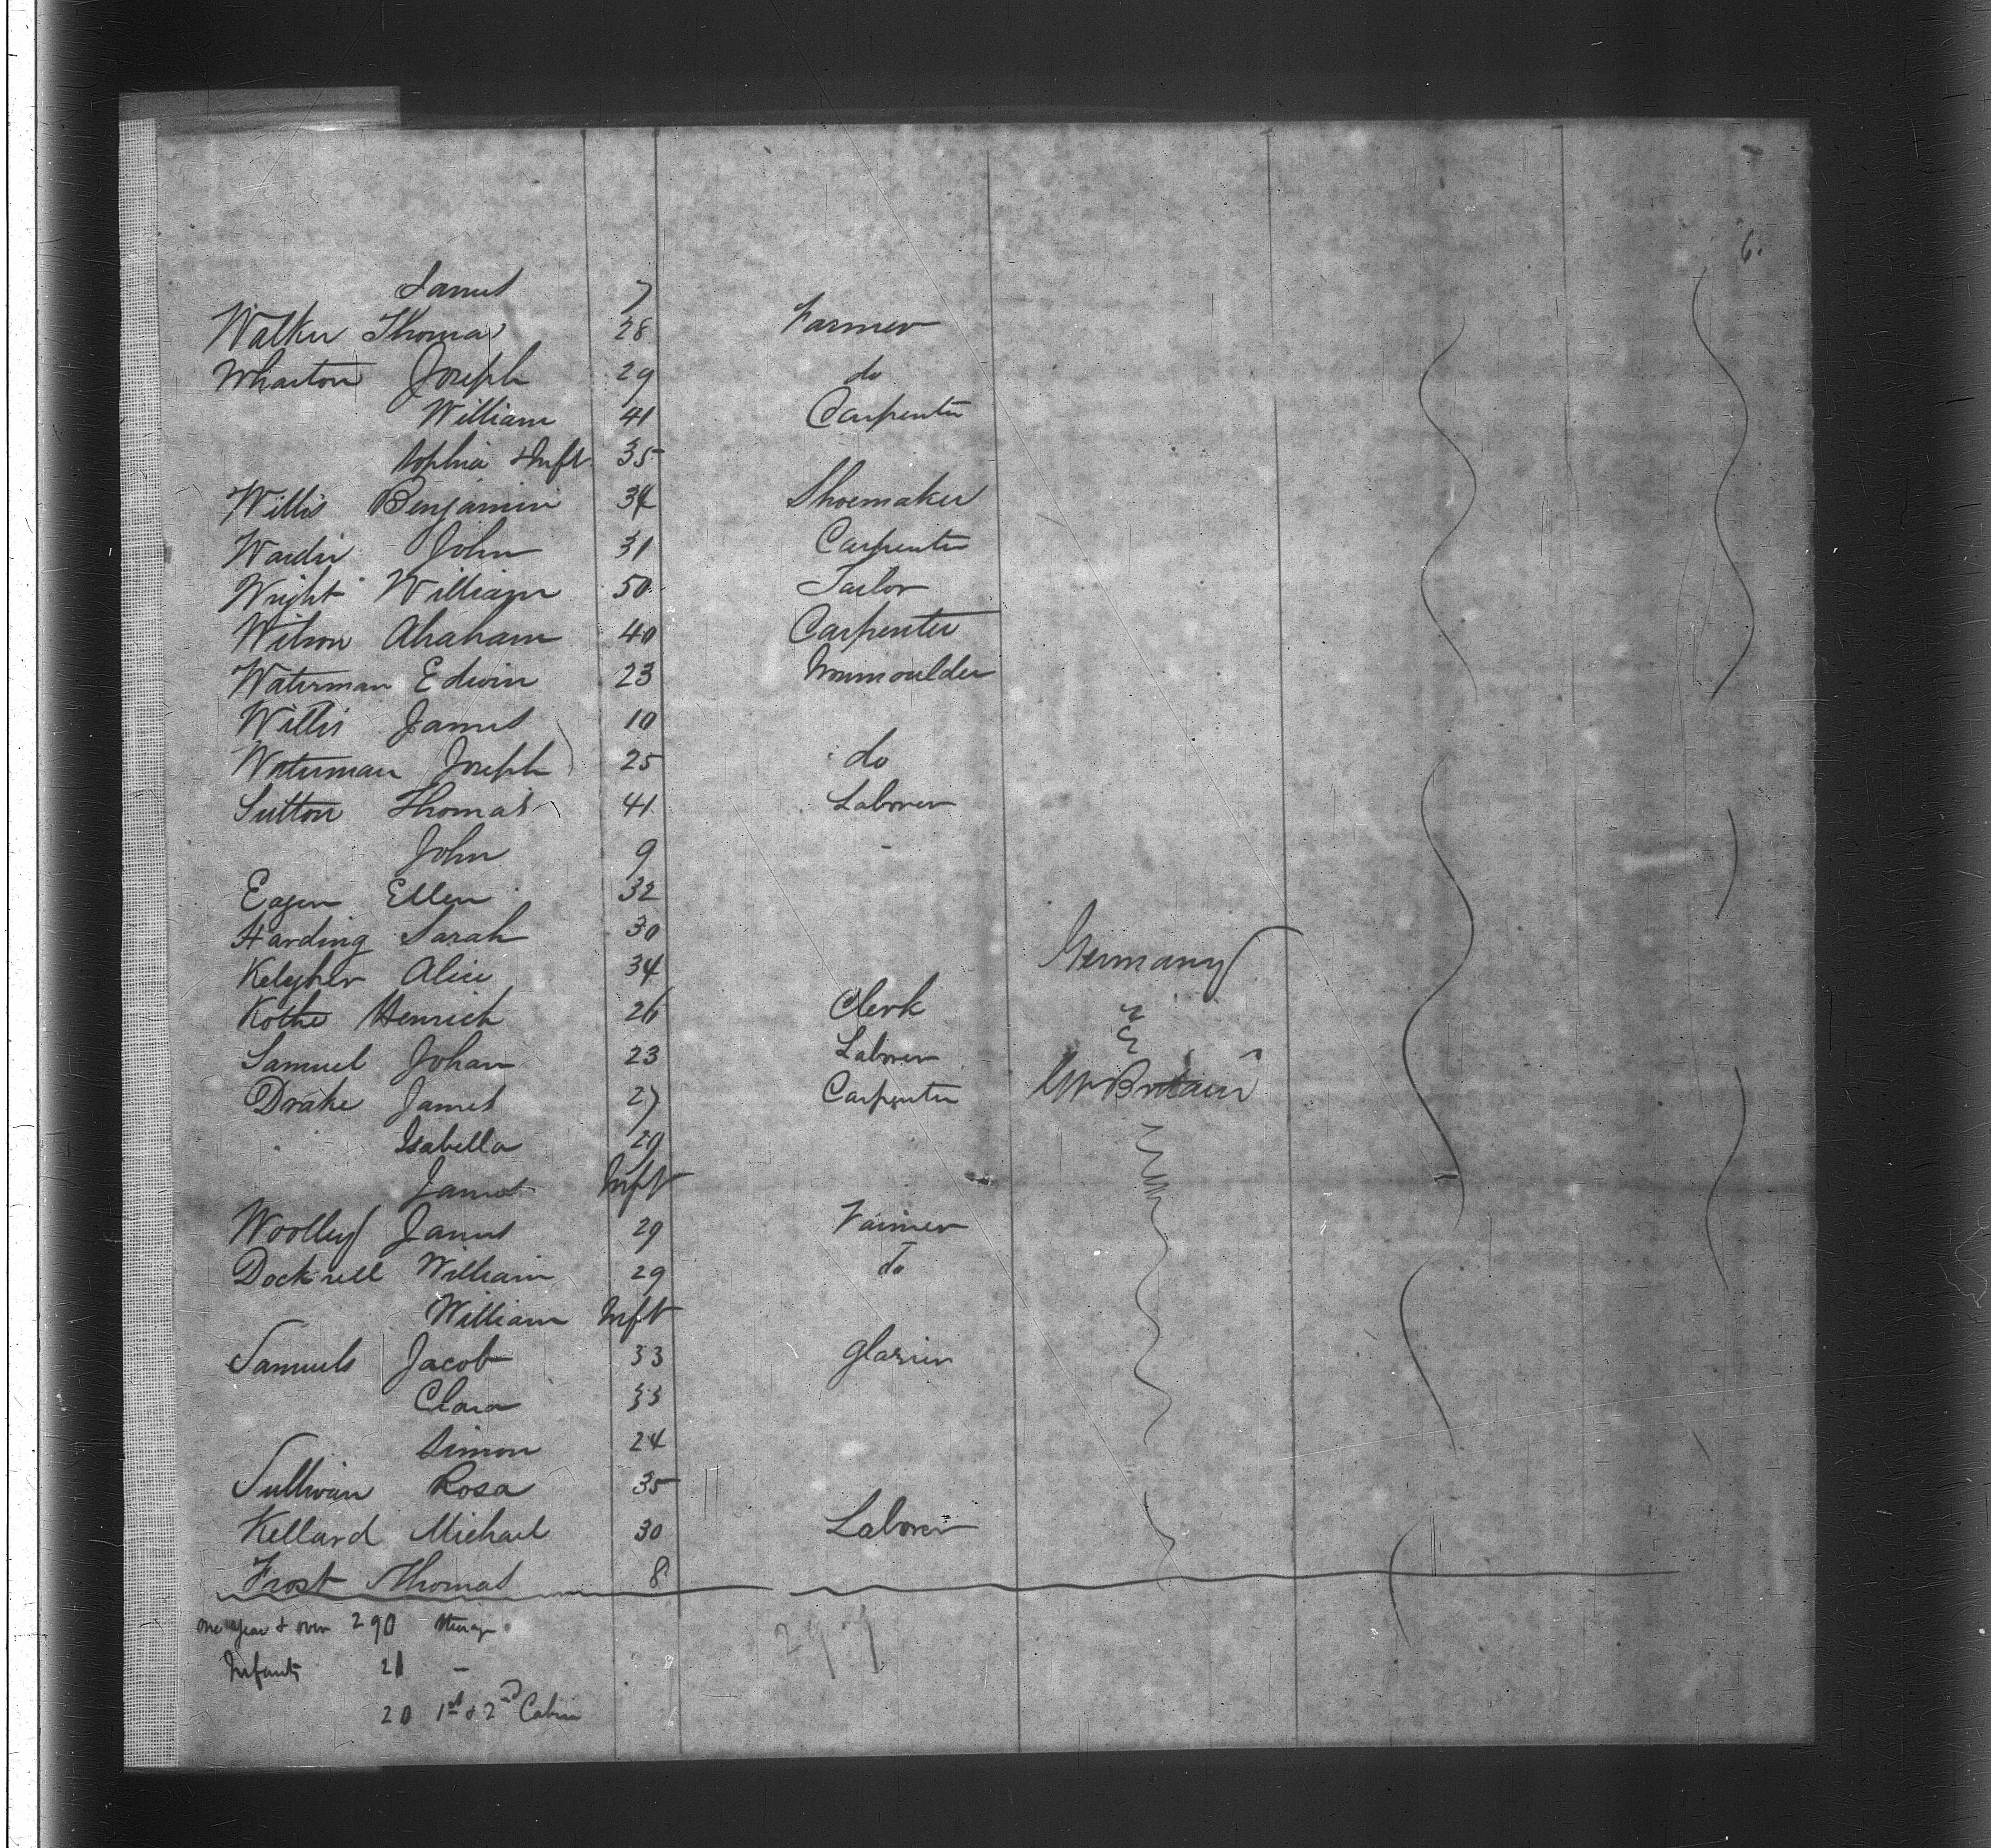 6.
James 7
Walker Thomas 28 Farmer
Wharton Joseph 29 do
William 41 Carpenter
Sophia & Inft 35
Willis Benjamin 34 Shoemaker
John 31 Carpenter
Wright William 50 Tailor
Wilson Abraham 40 Carpenter
Waterman Edwin 23 Ironmoulder
Willis James 10
Waterman Joseph 25 do
Sutton Thomas 41 Laborer
John 9 -
Eagen Ellen 32
Harding Sarah 30
Kelegher Alice 34 Germany
Kothe Henrich 26 Clerk
Samuel Johan 23 Laborer
Drake James 27 Carpenter Gt Britain
Isabella 29
James Inft
Woolley James 29 Farmer
Dockrell William 29 do
William Inft
Samuels Jacob 33 Glazier
Clara 33
Simon 24
Sullivan Rosa 35
Kellard Michael 30 Laborer
Frost Thomas 8
One year & over 290 Steerage
Infants 21 -
20 1st & 2nd Cabin